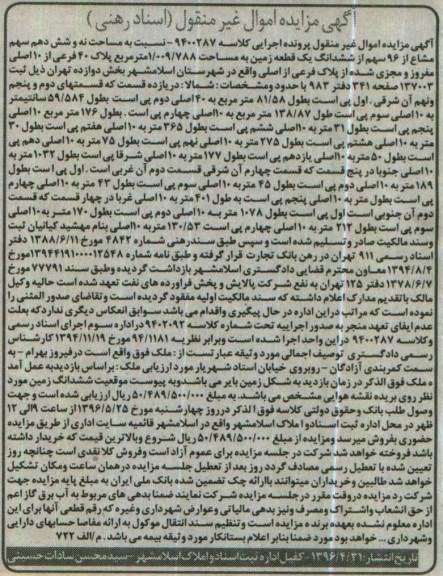 آگهی مزایده اموال غیر منقول (اسناد رهنی)
آگهی مزایده اموال غیر منقول پرونده اجرایی کلاسه ۹۴۰۰۲۸۷ - نسبت به مساحت نه و شش دهم سهم
مشاع از ۹۶ سهم از ششدانگ یک قطعه زمین به مساحت ۱/۰۰۹/۷۸۸ مترمربع پلاک ۴۰ فرعی از ۱۰ اصلی
مفروز و مجزی شده از پلاک فرعی از اصلی واقع در شهرستان اسلامشهر بخش دوازده تهران ذیل ثبت
۱۳۷۰۰۳ صفحه ۳۴۱ دفتر ۹۸۳ با حدود ومشخصات: شمالا: دریازده قسمت که قسمتهای دوم و پنجم
ونهم آن شرقی . اول پی است بطول ۸۱/۵۸ متر مربع به ۴۰ اصلی دوم پی است بطول ۵۹/۵۸۴ سانتیمتر
به ۱۰ اصلی سوم پی است بطول ۱۳۸/۸۷ متر مربع به ۱۰ اصلی چهارم پی است . بطول ۱۷۶ متر مربع ۱۰ اصلی
پنجم پی است بطول ۳۱ متر به ۱۰ اصلی ششم پی است بطول ۳۶۵ متر به ۱۰ اصلی هفتم پی است بطول ۳۰
متر به ۱۰ اصلی هشتم پی است بطول ۲۷۵ متر به ۱۰ اصلی نهم پی است بطول ۷۵ متر به ۱۰ اصلی دهم پی
است بطول ۵۰ متر به ۱۰ اصلی یازدهم پی است بطول ۱۷۷ متر به ۱۰ اصلی شرقا پی است بطول ۱۰۳۲ متر به
۱۰ اصلی جنوبا در پنج قسمت که قسمت چهارم آن شرقی قسمت دوم آن غربی است . اول پی است بطول
۱۸۹ متر به ۱۰ اصلی دوم پی است بطول ۴۵ متر به ۱۰ اصلی سوم پی است بطول ۴۳ متر به ۱۰ اصلی چهارم
پی است بطول متر به ۱۰ اصلی پنجم پی است به طول ۴۰۱ متر به ۱۰ اصلی غربا در چهار قسمت که قسمت
دوم آن جنوبی است اول پی است بطول ۱۰۷۸ متر به ۱۰ اصلی دوم پی است بطول ۱۷۰ متر به ۱۰ اصلی
سوم پی است بطول ۲۱۳ متر به ۱۰ اصلی چهارم پی است ۱۳۰/۵۳ متر به ۱۰ اصلی بنام مهشید کیانیان ثبت
وسند مالکیت صادر وتسلیم شده است و سپس طبق سند رهنی شماره ۴۸۴۲ مورخ ۱۳۸۸/۶/۱۱ دفتر
اسناد رسمی ۹۱۱ تهران در رهن بانک تجارت قرار گرفته و طبق نامه شماره مورخ
۱۳۹۴/۸/۴ معاون محترم قضایی دادگستری اسلامشهر بازداشت گردیده وطبق سند ۷۷۷۹۱ مورخ
۱۳۷۸/۶/۷ دفتر ۱۲۵ تهران به نفع شرکت پالایش و پخش فراورده های نفت تعهد شده است حالیه وکیل
مالک باتقدیم مدارک اعلام داشته که سند مالکیت اولیه مفقود گردیده است و تقاضای صدور المثنی را
نموده است که مراتب در این اداره در حال پیگیری واقدام می باشد سوابق انعکاس دیگری ندارد که بعلت
عدم ایفای تعهد منجر به صدور اجراییه تحت شماره کلاسه ۹۴۰۲۰۹۲ در اداره سوم اجرای اسناد رسمی
وکلاسه ۹۴۰۰۲۸۷ در این واحد اجرا شده است وبرابر نظریه ۹۴/۱۱۸۱ مورخ ۱۳۹۴/۱۱/۱۹ کارشناس
رسمی دادگستری توصیف اجمالی مورد وثیقه عبارتست از : ملک فوق واقع است در فیروز بهرام - به
سمت کمربندی آزادگان - روبروی خیابان استاد شهریار مورد ارزیابی ملک : براساس بازدید به عمل آمد
ه ملک فوق الذکر در زمان بازدید به شکل زمین بایر می باشد وبه پیوست موقعیت ششدانگ زمین مورد
نظر روی بریده نقشه هوایی مشخص می باشد . به مبلغ ۵۰/۴۸۹/۵۰۰/۰۰۰ ریال ارزیابی شده است و جهت
وصول طلب بانک و حقوق دولتی کلاسه فوق الذکر در روز چهار شنبه مورخ ۱۳۹۶/۵/۲۵ از ساعت ۹ الی ۱۲
ظهر در محل اداره ثبت اسناد و املاک اسلامشهر واقع در اسلامشهر قائمیه سایت اداری از طریق مزایده
حضوری بفروش میرسد ومزایده از مبلغ ۵۰/۴۸۹/۵۰۰/۰۰۰ ریال شروع وبالاترین قیمت که خریدار داشته
باشد فروخته خواهد شد شرکت در جلسه مزایده برای عموم آزاد است وفروش کلا نقدی است چنانچه روز
تعیین شده با تعطیل رسمی مصادف گردد روز بعد از تعطیل جلسه مزایده در همان ساعت ومکان تشکیل
خواهد شد طالبین و خریداران میتوانند باارائه چک تضمین شده بانک ملی ایران به مبلغ پایه مزایده جهت
شرکت رد مزایده دروقت مقرر در جلسه مزایده شرکت نمایند ضمنا بدهی های مربوط به آب برق گاز اعم
از حق انشعاب واشتراک ومصرف ونیز بدهی مالیاتی وعوارض شهرداری وغیره که رقم قطعی آنها برای این
اداره معلوم نشده بعهده برنده مزایده است و تنظیم سند انتقال موکول به ارائه مفاصا حسابهای دارایی
وشهرداری ... خواهد بود مورد ضمنا بنابر اعلام بستانکار مورد وثیقه بیمه می باشد . م/الف ۷۲۲
تاریخ انتشار: ۱۳۹۶/۴/۲۱ - کفیل اداره ثبت اسناد و املاک اسلامشهر - سید محسن سادات حسینی